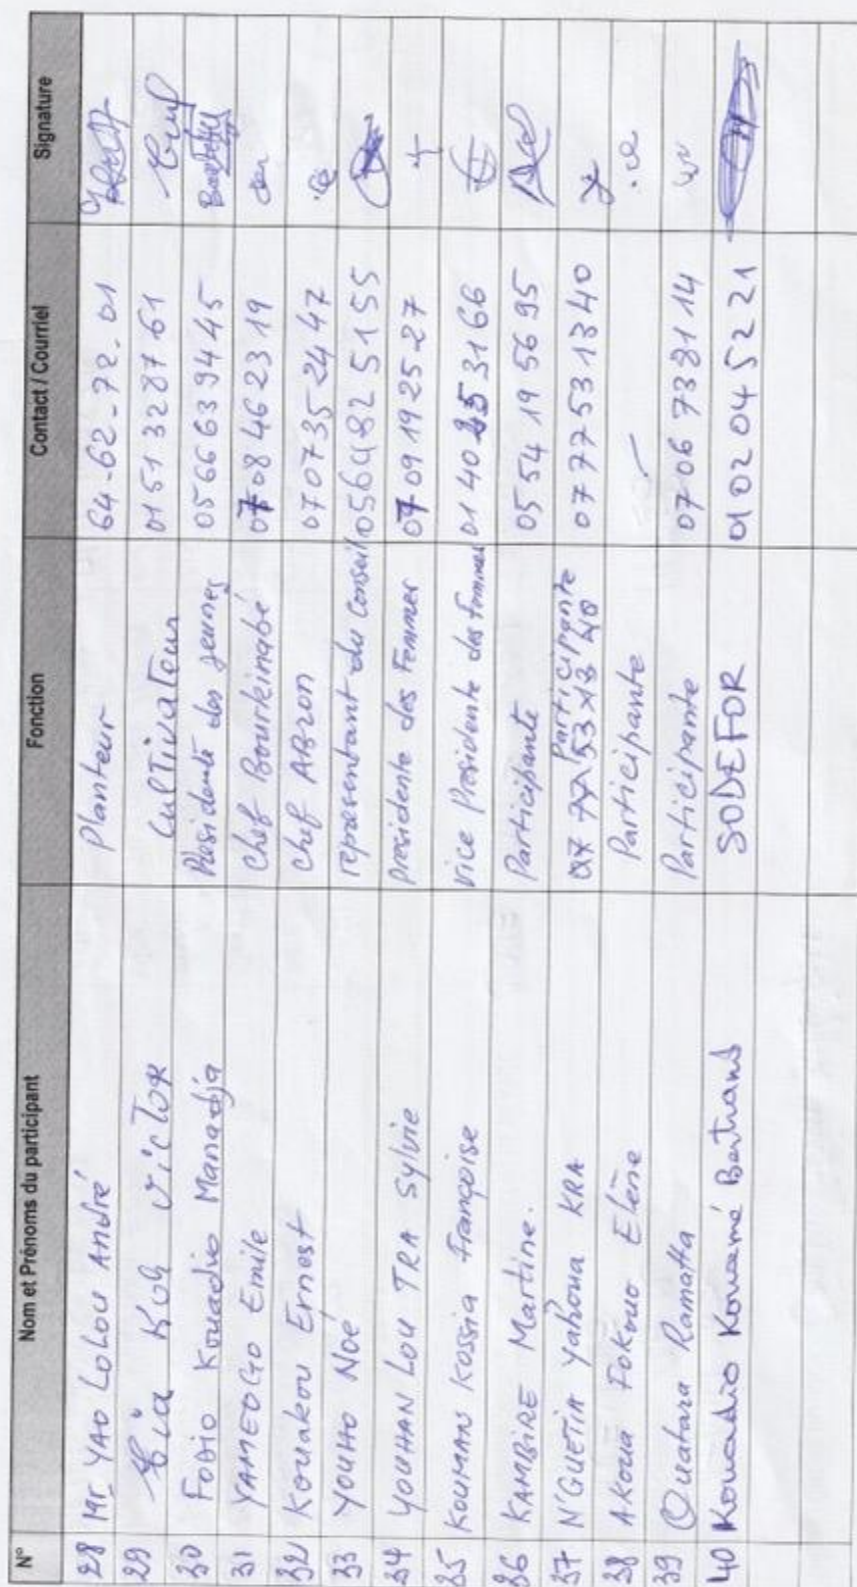 N° Nom et Prénoms du participant Fonction Contact / Courriel Signature
28 Mr YAO LOLOU André Planteur 64-62-72-01
29 Koh VicToR CulTivaTeur 01 51 32 87 61
30 Fobio Kouadio Manadja Présidente des jeunes 05 66 63 94 45
31 YAMEOGO Emile Chef Bourkinabé 07 08 46 23 19
32 Kouakou Ernest Chef ABron 07 07 35 24 47
33 YOUHO Noé représentant du Conseil 05 64 82 51 55
34 YOUHAN LOU TRA Sylvie présidente des Femmes 07 09 19 25 27
35 KOUMAN Kossia Françoise Vice Présidente des femmes 01 40 53 31 66
36 KAMBIRE Martine. Participante 05 54 19 56 95
37 N'GUETIA Yahoua KRA Participante 07 77 53 13 40 07 77 53 13 40
38 AKoua Fokouo Elène Participante
39 Ouatara Ramatta Participante 07 06 73 81 14
40 Kouadio Kouamé Bertrand SODEFOR 01 02 04 52 21